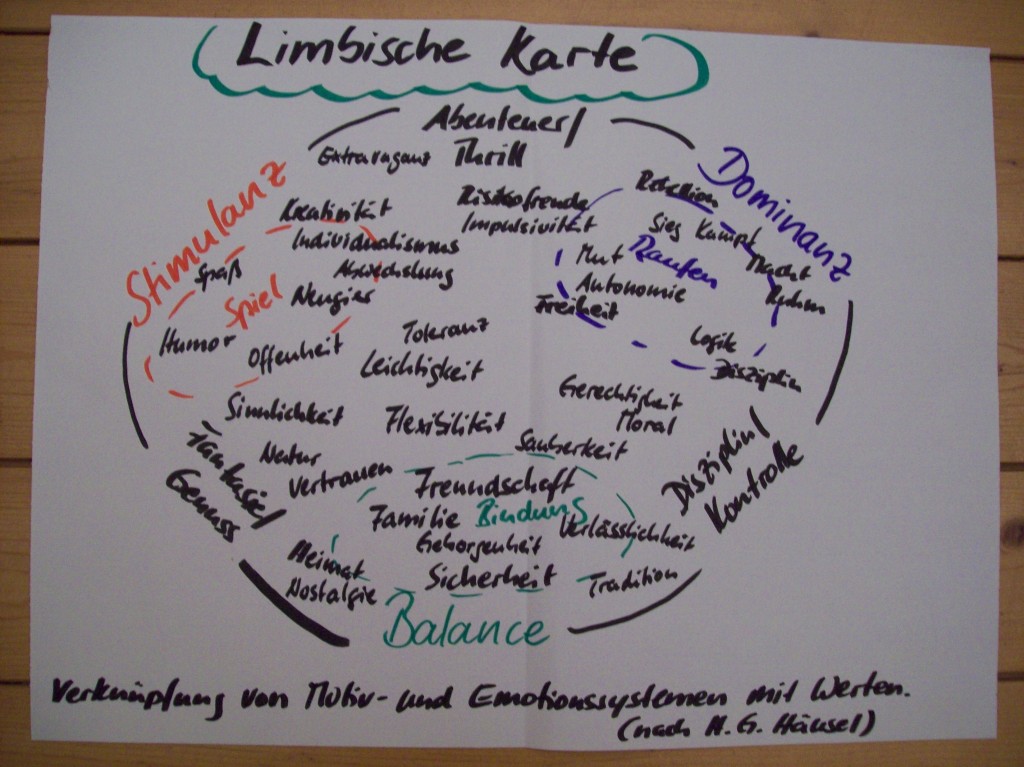 Limbische Karte
Abenteuer/
Thrill
Extravaganz
Stimulanz
Dominanz
Rebellion
Kreativität
Risikofreude
Impulsivität
Sieg Kampf
Individualismus
Mut Raufen
Macht
Spaß
Abwechslung
Autonomie
Ruhm
Spiel Neugier
Freiheit
Humor
Toleranz
Logik
Offenheit
Leichtigkeit
Disziplin
Gerechtigkeit
Moral
Sinnlichkeit
Flexibilität
Sauberkeit
Fantasie/
Genuss
Natur
Vertrauen
Disziplin/
Kontrolle
Freundschaft
Familie Bindung
Verlässlichkeit
Geborgenheit
Heimat
Sicherheit
Tradition
Nostalgie
Balance
Verknüpfung von Motiv- und Emotionssystemen mit Werten.
(nach H. G. Häusel)